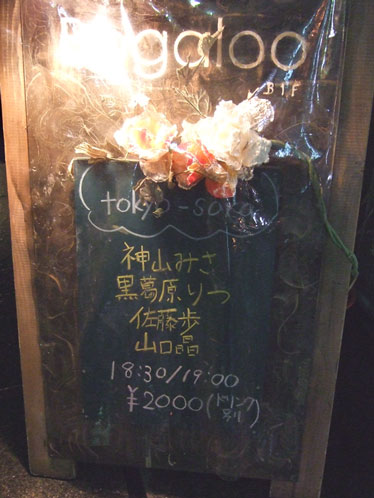 B1F
tokyo-sora
神山みさ
黒葛原りつ
佐藤歩
山口晶
18:30/19:00
¥2000(ドリンク別)